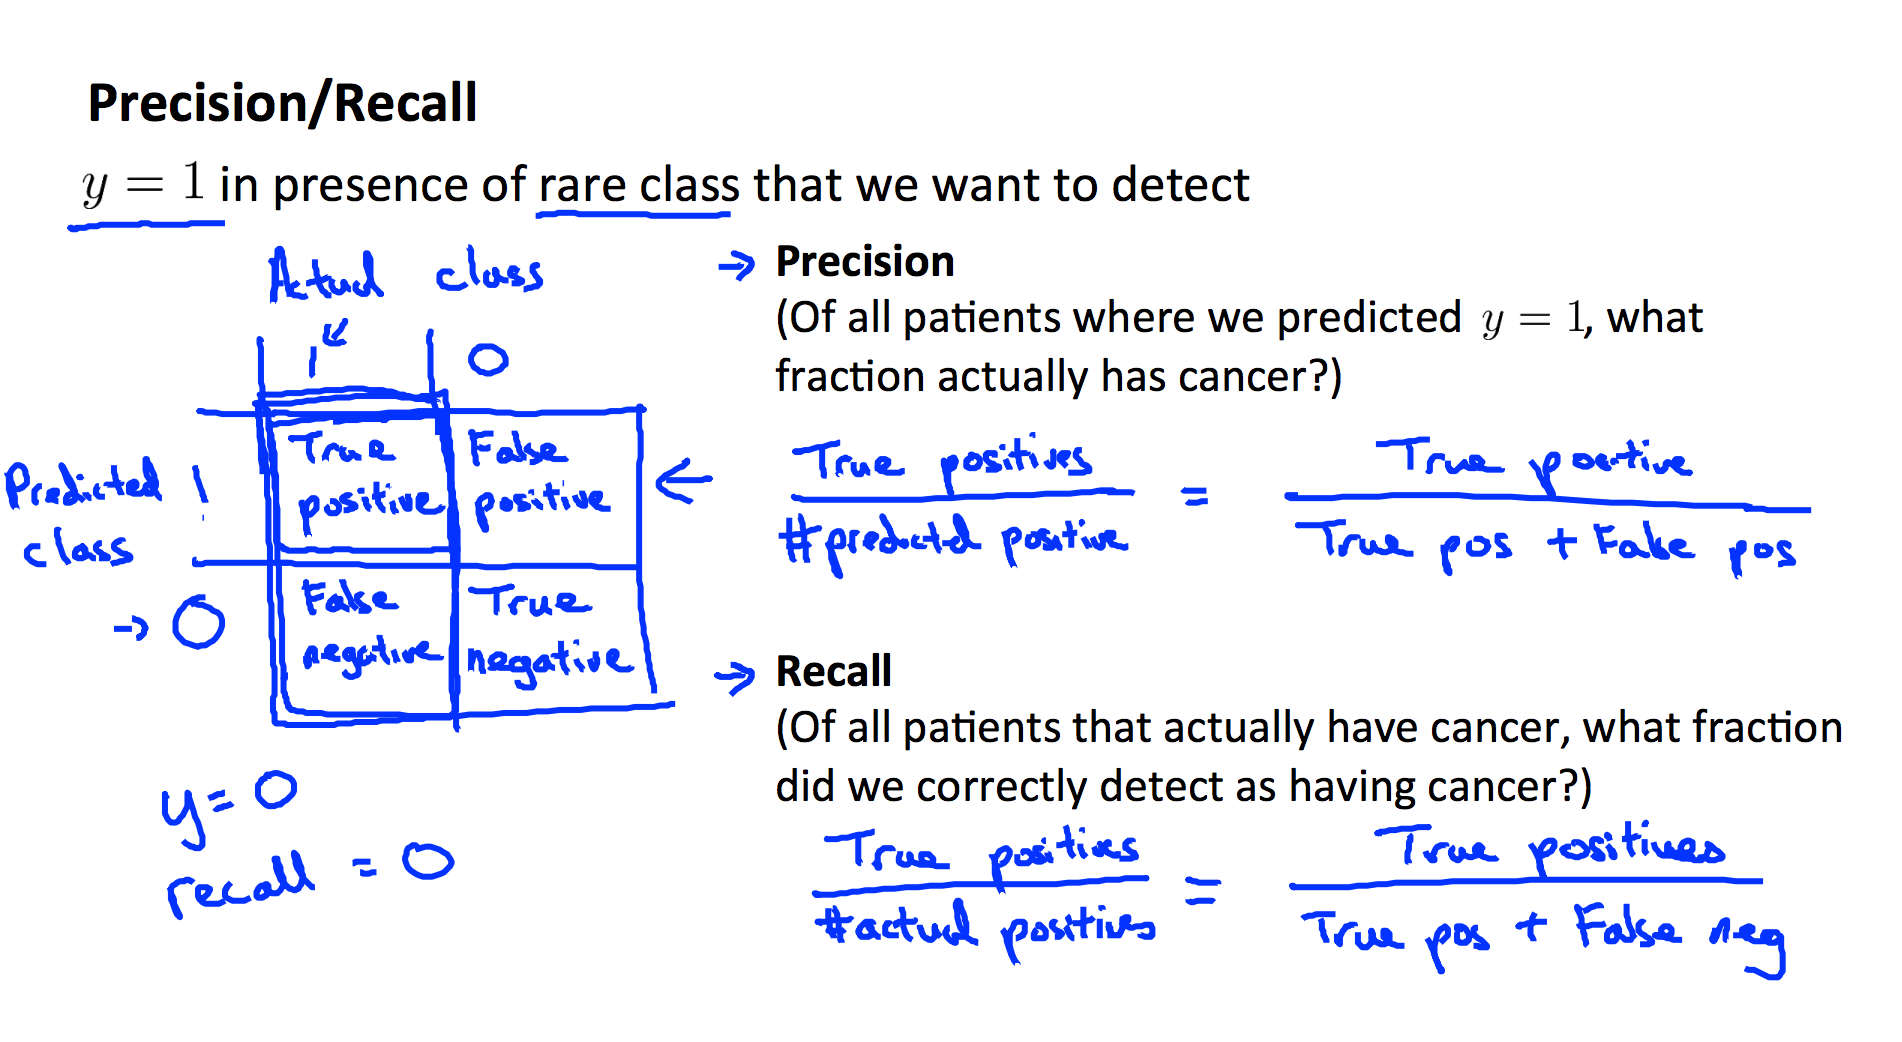 Precision/Recall
y = 1 in presence of rare class that we want to detect
Actual class
1 0
Predicted class
1
True positive
False positive
0
False negative
True negative
y = 0
recall = 0
→ Precision
(Of all patients where we predicted y = 1, what
fraction actually has cancer?)
True positives / #predicted positive = True positive / True pos + False pos
→ Recall
(Of all patients that actually have cancer, what fraction
did we correctly detect as having cancer?)
True positives / #actual positives = True positives / True pos + False neg